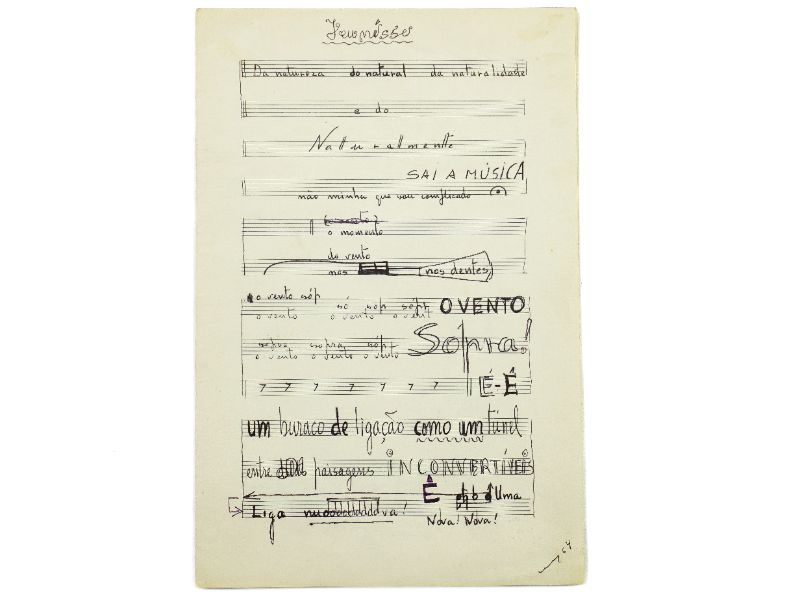 Da natureza do natural da naturalidade
e do
Natu-almente
SAI A MÚSICA
não minha que sou complicado
o momento
do vento
nos nos dentes
o vento sóp só sop sópr O VENTO
o vento o vento o vent
sopra sopra sópr Sopra!
o vento o vento o vento
É-É
um buraco de ligação como um túnel
entre duas paisagens INCONVERTÍVEIS
É Uma
Liga va!
Nova! Nova!